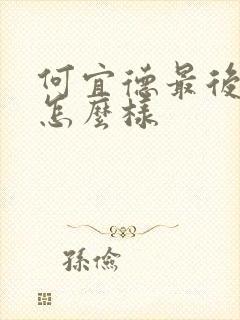 何宜德最後
怎麼樣
孫儉